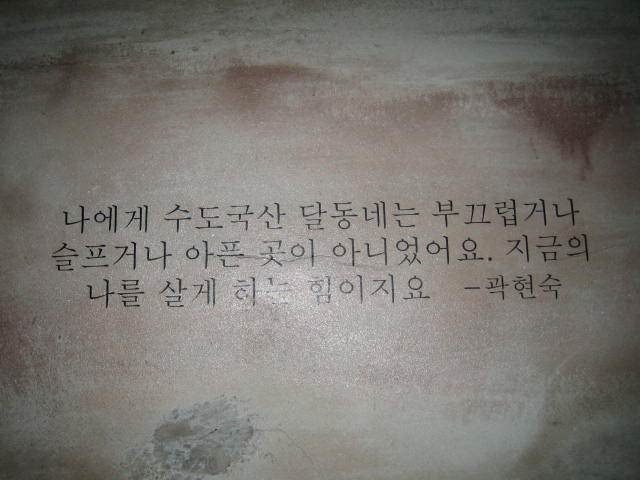 나에게 수도국산 달동네는 부끄럽거나
슬프거나 아픈 곳이 아니었어요. 지금의
나를 살게 하는 힘이지요 -곽현숙